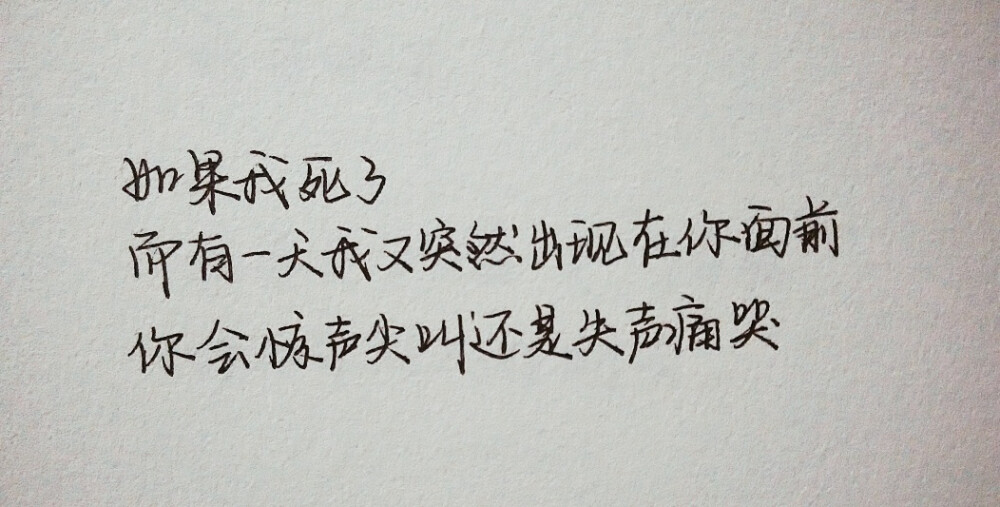 如果我死了
而有一天我又突然出现在你面前
你会惊声尖叫还是失声痛哭